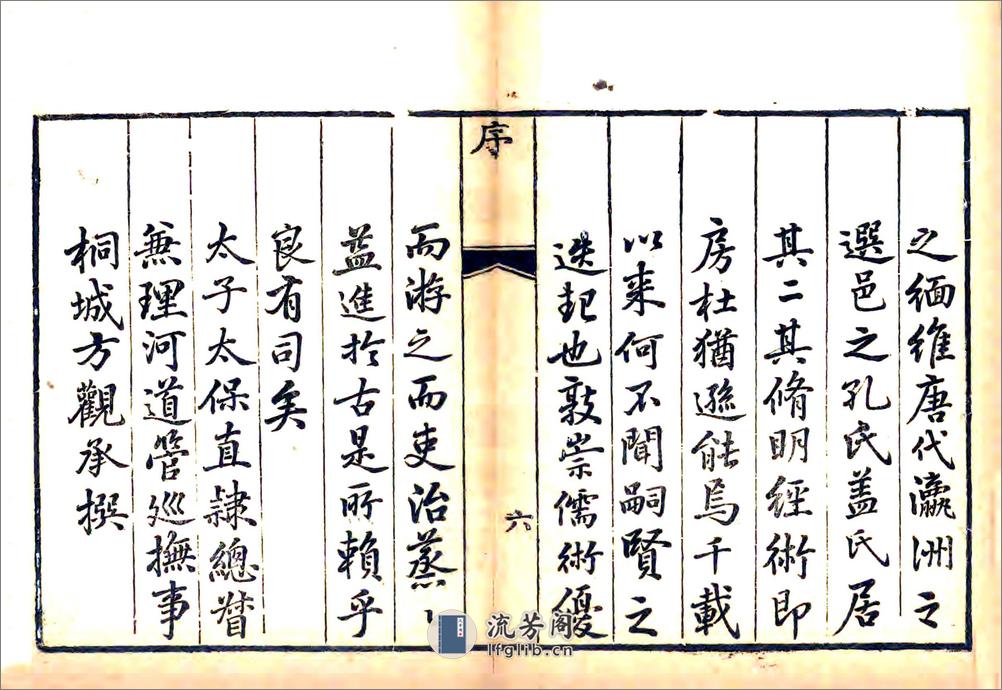 之緬維唐代瀛洲之
選邑之孔氏蓋氏居
其二其脩明經術即
房杜猶遜能焉千載
以来何不聞嗣賢之
迭起也敦崇儒術優
序
六
而游之而吏治蒸〻
益進於古是所頼乎
良有司矣
太子太保直隷總督
兼理河道管巡撫事
桐城方觀承撰
流芳阁
lfglib.cn